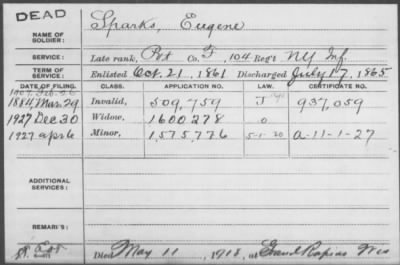 DEAD
NAME OF SOLDIER: Sparks, Eugene
SERVICE: Late rank, Pvt Co. F, 104 Reg't NY Inf.
TERM OF SERVICE: Enlisted Oct. 21, 1861 Discharged July 17, 1865
DATE OF FILING. CLASS. APPLICATION NO. LAW. CERTIFICATE NO.
1907 Feb. 26
1884 Mar. 29 Invalid, 509,759 J 937,059
1927 Dec 30 Widow, 1600278 O
1927 Apr 6 Minor, 1,575,776 5-1-20 A-11-1-27
ADDITIONAL SERVICES:
REMARKS:
Died May 11, 1918, at Grand Rapids Wis